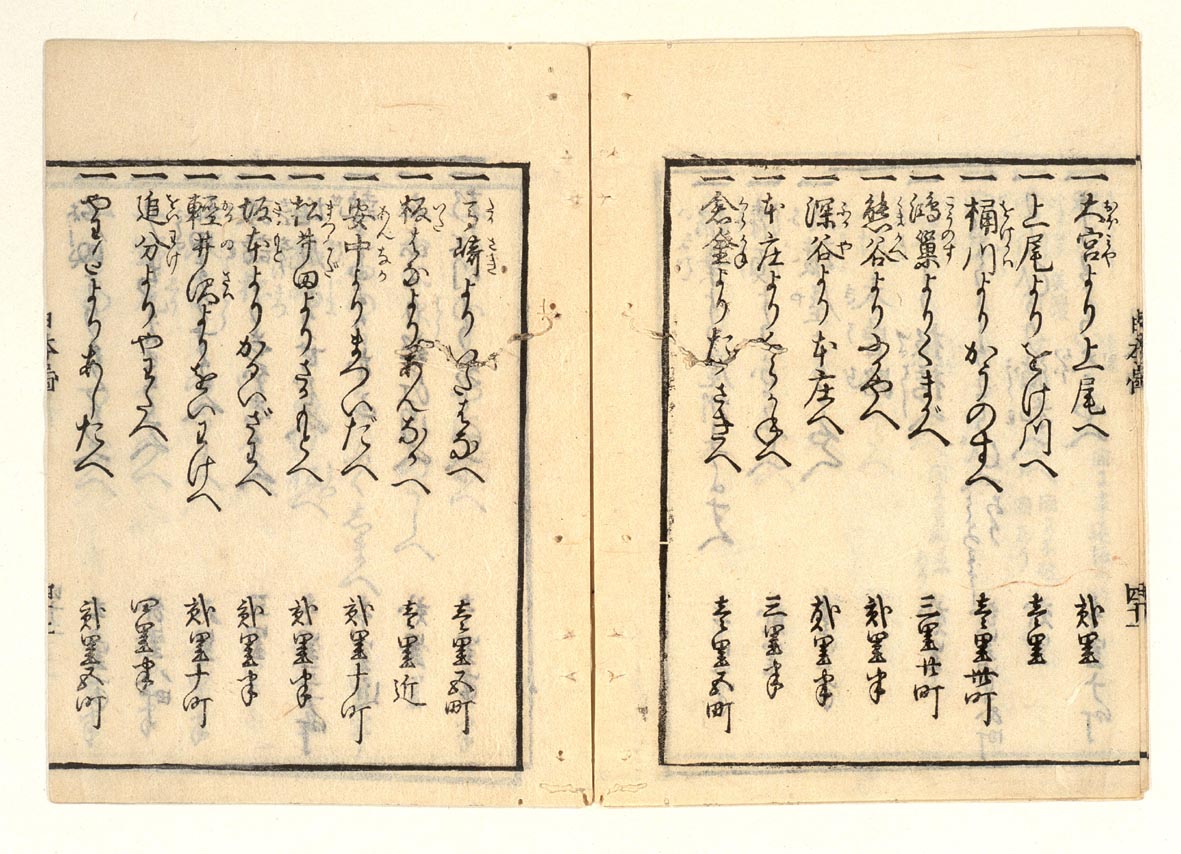 一 大宮より上尾へ 貳里
一 上尾よりをけ川へ 壱里
一 桶川よりかうのすへ 壱里卅町
一 鴻巣よりくまがへ 三里廿町
一 熊谷よりふかやへ 貳里半
一 深谷より本庄へ 貳里半
一 本庄よりくらかねへ 三里半
一 倉金よりたかさきへ 壱里五町
一 高崎よりいたはなへ 壱里五町
一 板はなよりあんなかへ 壱里近
一 安中よりまついだへ 貳里十町
一 松井田よりさかもとへ 貳里半
一 坂本よりかるいざわへ 貳里半
一 軽井沢よりをいわけへ 貳里十町
一 追分よりやわたへ 四里半
一 やわたよりあしたへ 貳里五町